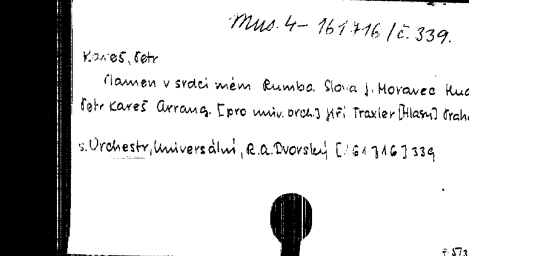 Mus. 4 – 161716/č. 339.
Kareš, Petr
Plamen v srdci mém Rumba. Slova J. Moravec Hud
Petr Kareš Arrang. [pro univ. orch.] Jiří Traxler [Hlasy] Praha
s. Orchestr, Universální, R.A. Dvorský [161716] 339